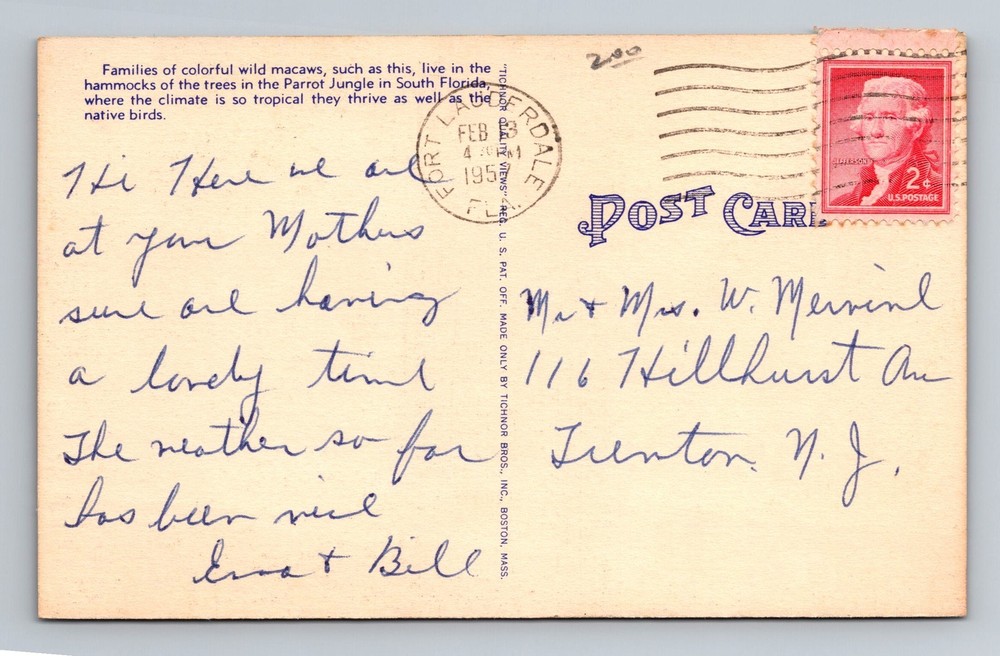 Families of colorful wild macaws, such as this, live in the
hammocks of the trees in the Parrot Jungle in South Florida,
where the climate is so tropical they thrive as well as the
native birds.
Hi Here we are
at your Mothers
sure are having
a lovely time
The weather so far
has been nice
Erna + Bill
"TICHNOR QUALITY VIEWS" REG. U. S. PAT. OFF. MADE ONLY BY TICHNOR BROS., INC., BOSTON, MASS.
2.00
FORT LAUDERDALE
FEB 3
4 PM
195
FLA.
JEFFERSON
2¢
U.S. POSTAGE
POST CARD
Mr + Mrs. W. Mervine
116 Hillhurst Ave
Trenton. N. J.